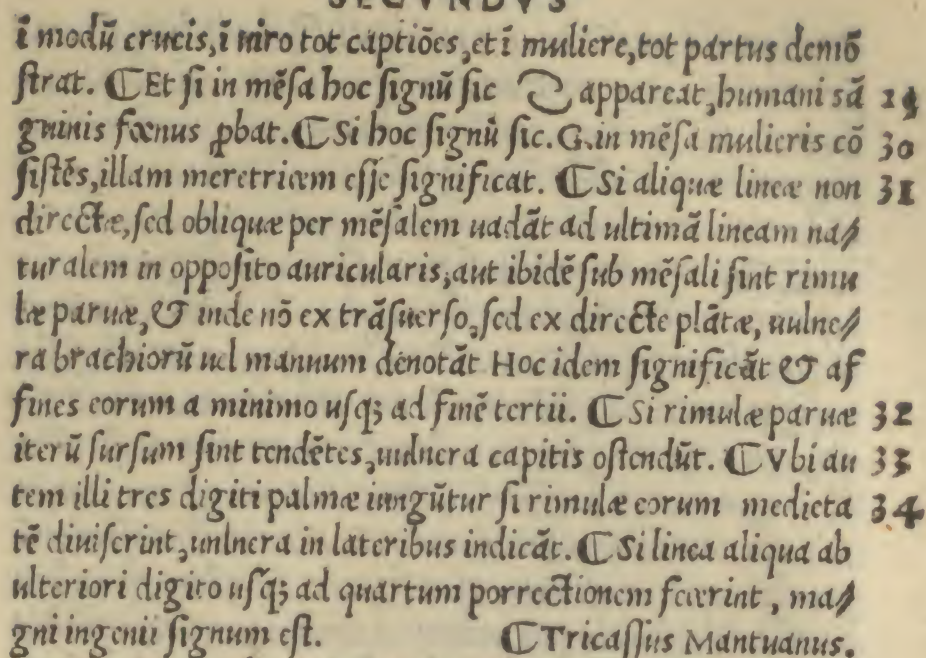 SECVNDVS
ĩ modũ crucis, ĩ uiro tot captiões, et ĩ muliere, tot partus demõ
ſtrat. ⁋Et ſi in mẽſa hoc ſignũ ſic appareat, humani sã 29
guinis fœnus ꝓbat. ⁋Si hoc ſignũ ſic. G. in mẽſa mulieris cõ 30
ſiſtẽs, illam meretricem eſſe ſignificat. ⁋Si aliquæ lineæ non 31
directæ, ſed obliquæ per mẽſalem uadãt ad ultimã lineam na⸗
turalem in oppoſito auricularis, aut ibidẽ ſub mẽſali ſint rimu
læ paruæ, & inde nõ ex trãſuerſo, ſed ex directe plãtæ, uulne⸗
ra brachiorũ uel manuum denotãt Hoc idem ſignificãt & af
fines eorum a minimo uſq; ad finẽ tertii. ⁋Si rimulæ paruæ 32
iterũ ſurſum ſint tendẽtes, uulnera capitis oſtendũt. ⁋Vbi au 33
tem illi tres digiti palmæ iungũtur ſi rimulæ eorum medieta 34
tẽ diuiſerint, uulnera in lateribus indicãt. ⁋Si linea aliqua ab
ulteriori digito uſq; ad quartum porrectionem fecerint, ma⸗
gni ingenii ſignum eſt. ⁋Tricaſſus Mantuanus.